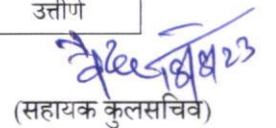 उत्तीर्ण
(सहायक कुलसचिव)